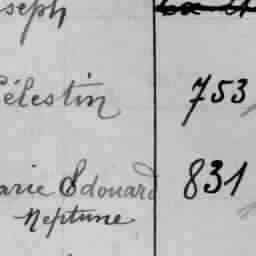 oseph
Célestin 753
arie Edouard 831
Neptune